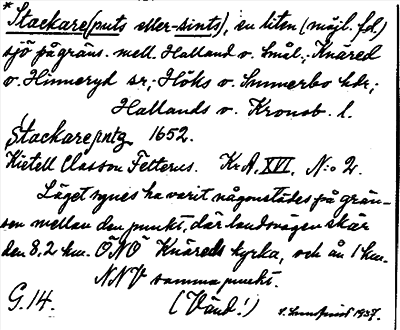 * Stackare (puts eller -sints), en liten (möjl. föl.)
sjö på gräns. mell. Halland o. Smål.; Knäred
o. Hinneryd sr; Höks o. Sunnerbo hdr;
Hallands o. Kronob. l.
Stackarepntz 1652.
Kietell Classon Felterus. Kr.A. XVI, N:o 2.
Läget synes ha varit någonstädes på grän-
sen mellan den punkt, där landsvägen skär
den 8,2 km. ÖNÖ Knäreds kyrka, och ån 1 km.
NNV samma punkt.
G. 14. (Vänd!) 1937.